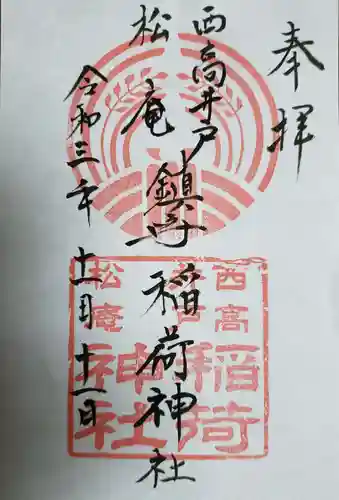 奉拝
西高井戸
松庵
鎮守
稲荷神社
令和三年
十一月十一日
西高
井戸
松庵
稲荷
神社